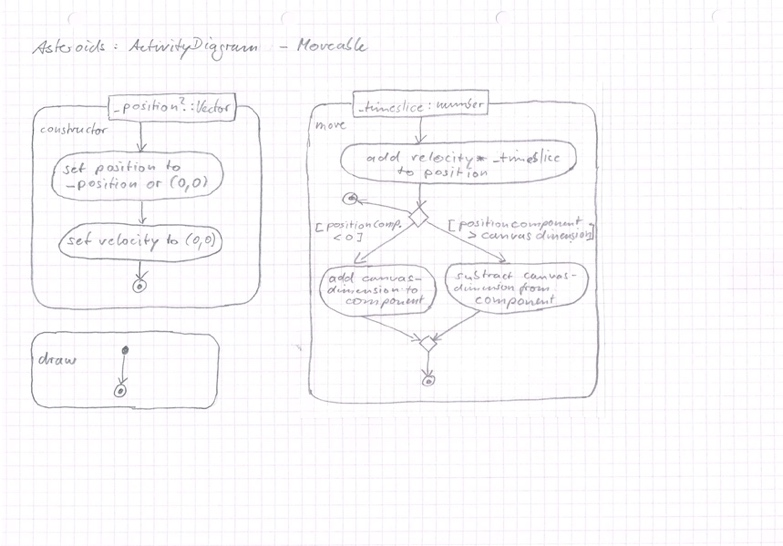 Asteroids: ActivityDiagram - Moveable
_position?: Vector
constructor
set position to
_position or (0,0)
set velocity to (0,0)
draw
_timeslice: number
move
add velocity * _timeslice
to position
[positioncomp.
< 0]
[positioncomponent
> canvas dimension]
add canvas-
dimension to
component
subtract canvas-
dimension from
component